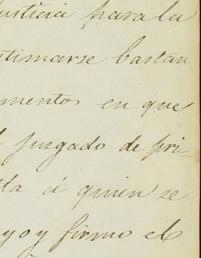 usticia para la
stimarse bastan
mentos en que
juzgado de pri-
lla á quien se
yo y firmo el